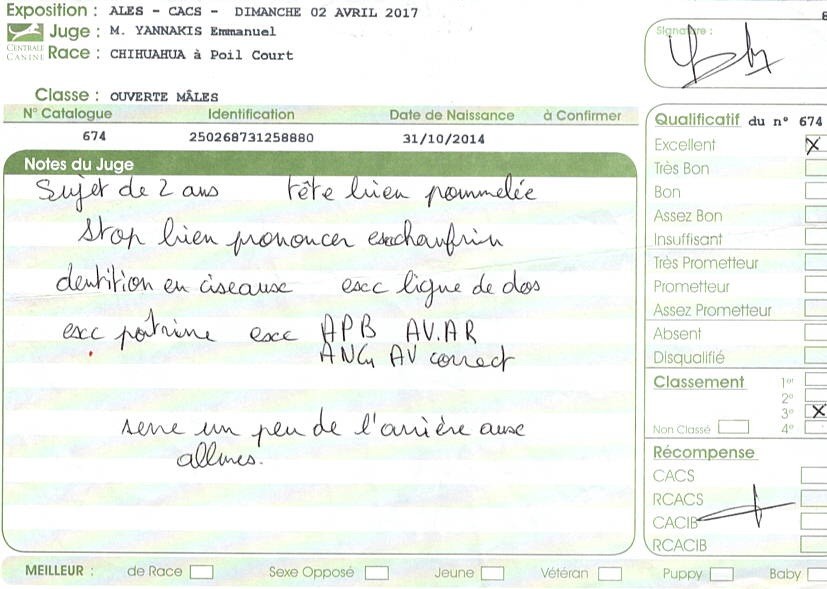 Exposition : ALES - CACS - DIMANCHE 02 AVRIL 2017
Juge : M. YANNAKIS Emmanuel
CENTRALE CANINE
Race : CHIHUAHUA à Poil Court
Signature :
Classe : OUVERTE MÂLES
N° Catalogue Identification Date de Naissance à Confirmer
674 250268731258880 31/10/2014
Qualificatif du n° 674
Excellent X
Très Bon
Bon
Assez Bon
Insuffisant
Très Prometteur
Prometteur
Assez Prometteur
Absent
Disqualifié
Notes du Juge
Sujet de 2 ans tête bien pommelée
stop bien prononcer exc chanfrin
dentition en ciseaux exc ligne de dos
exc poitrine exc APB AV.AR
ANG AV correct
serre un peu de l'arrière aux
allures.
Classement 1er
2e
3e X
Non Classé 4e
Récompense
CACS
RCACS
CACIB
RCACIB
MEILLEUR : de Race Sexe Opposé Jeune Vétéran Puppy Baby